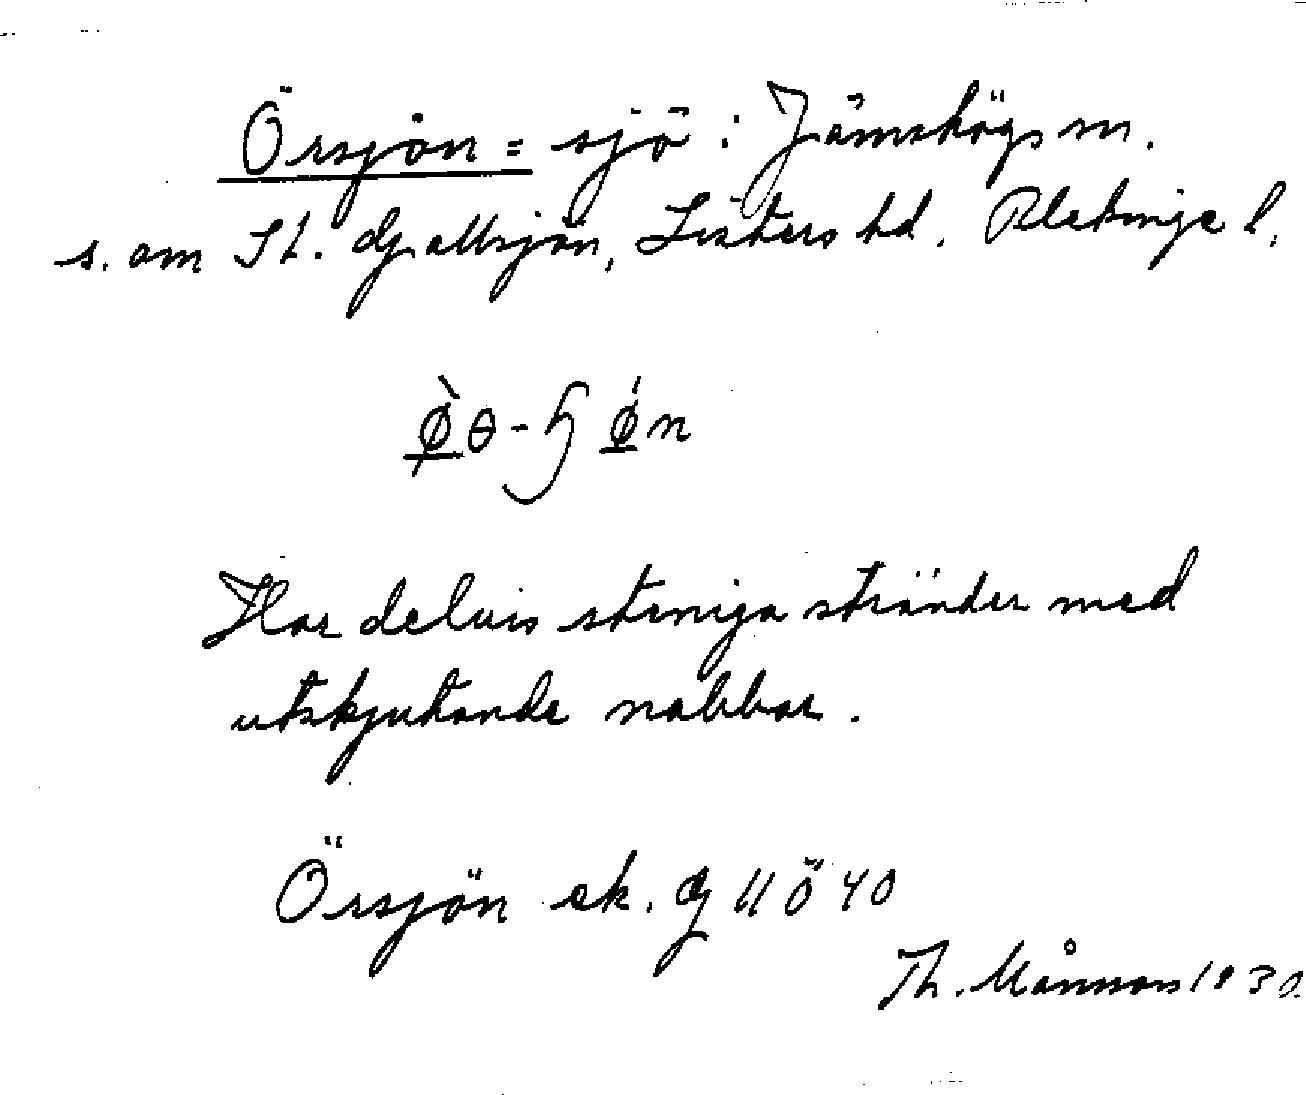 Örsjön = sjö i Jämshögs sn.
s. om St. Galtsjön, Listers hd. Blekinge l.
Har delvis steniga stränder med
utskjutande nabbar.
Örsjön ek. 9 11 Ö 40
Th. Månsson 1930.